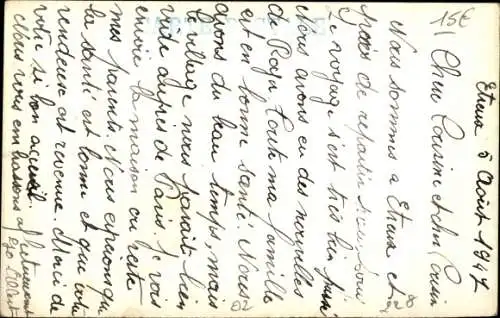 15€
Etreux 5 Août 1947
Cher Cousine et cher Cousin
Nous sommes a Etreux et
prêts de repartir
Le voyage s'est très bien passé
Nous avons eu des nouvelles
de Papa toute ma famille
est en bonne santé. Nous
avons du beau temps, mais
le village nous paraît bien
vide auprès de Paris. Je vois
encore la maison ou reste
mes parents. Nous espérons que
la santé est bonne et que votre
vendeuse est revenue. Merci de
votre si bon accueil
Nous vous embrassons affectueusement
02
28